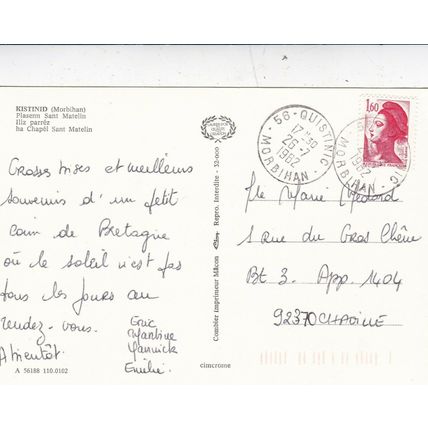 KISTINID (Morbihan)
Plasenn Sant Matelin
Iliz parréz
ha Chapél Sant Matelin
Grosses bises et meilleurs
souvenirs d'un petit
coin de Bretagne
où le soleil n'est pas
tous les jours au
rendez-vous.
A bientôt.
Eric
Martine
Yannick
Emilie
A 56188 110.0102
cimcrome
Combier imprimeur Mâcon
Repro. Interdite - 32-000
56 - QUISTINIC
17H30
26-7
1982
MORBIHAN
1,60
Marie
1 rue du Gros Chêne
Bt 3. App. 1404
92370 CHAVILLE